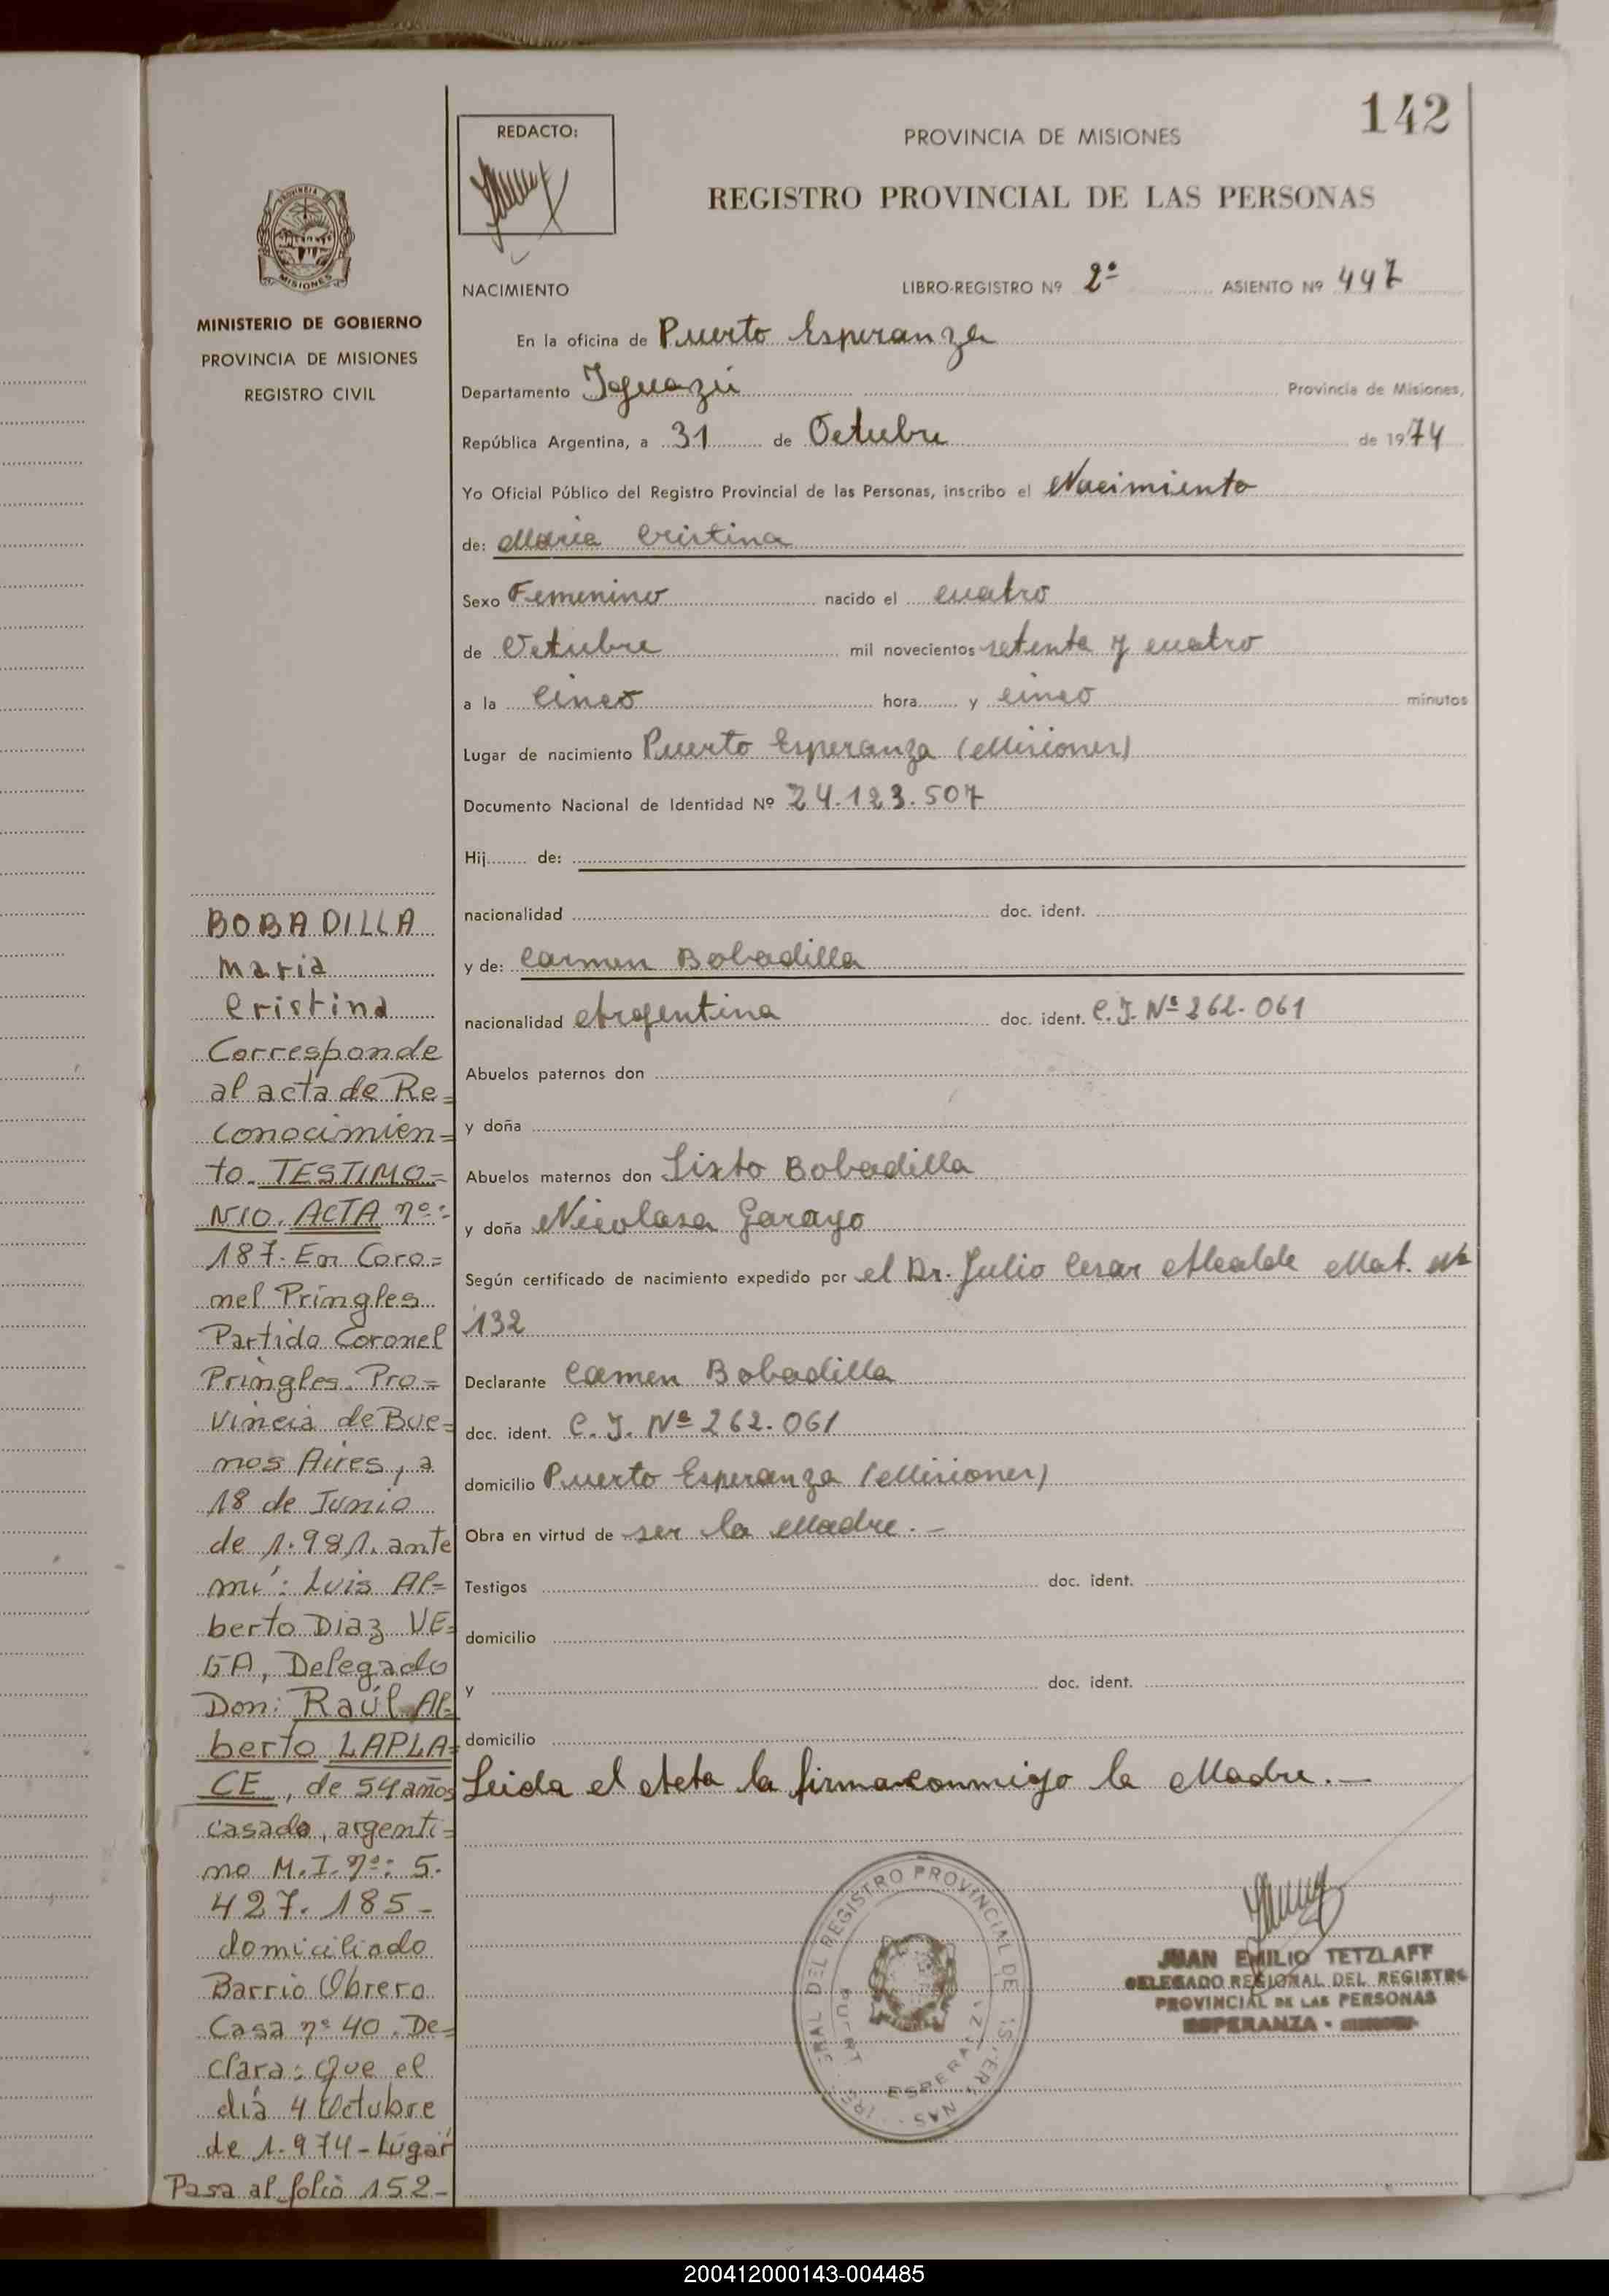 142
REDACTO:
PROVINCIA DE MISIONES
REGISTRO PROVINCIAL DE LAS PERSONAS
PROVINCIA DE
MISIONES
MINISTERIO DE GOBIERNO
PROVINCIA DE MISIONES
REGISTRO CIVIL
NACIMIENTO LIBRO-REGISTRO Nº 2º ASIENTO Nº 447
En la oficina de Puerto Esperanza
Departamento Iguazú Provincia de Misiones,
República Argentina, a 31 de Octubre de 1974
Yo Oficial Público del Registro Provincial de las Personas, inscribo el Nacimiento
de: Maria Cristina
Sexo Femenino nacido el cuatro
de Octubre mil novecientos setenta y cuatro
a la cinco hora y cinco minutos
Lugar de nacimiento Puerto Esperanza (Misiones)
Documento Nacional de Identidad Nº 24.123.507
Hij de:
nacionalidad doc. ident.
y de: Carmen Bobadilla
nacionalidad Argentina doc. ident. C.I. Nº 262.061
Abuelos paternos don
y doña
Abuelos maternos don Sixto Bobadilla
y doña Nicolasa Garayo
Según certificado de nacimiento expedido por el Dr. Julio Cesar Alcalde Mat. Nº
132
Declarante Carmen Bobadilla
doc. ident. C.I. Nº 262.061
domicilio Puerto Esperanza (Misiones)
Obra en virtud de ser la Madre.-
Testigos doc. ident.
domicilio
y doc. ident.
domicilio
Leida el Acta la firma conmigo la Madre.-
BOBADILLA
Maria
Cristina
Corresponde
al acta de Re=
conocimien=
to. TESTIMO=
NIO. ACTA nº:
187. En Coro=
nel Pringles
Partido Coronel
Pringles. Pro=
vincia de Bue=
nos Aires, a
18 de Junio
de 1.981. ante
mí: Luis Al=
berto Diaz VE=
GA, Delegado
Don: Raúl Al=
berto LAPLA=
CE, de 54 años
casado, argenti=
no M.I. nº: 5.
427.185-
domiciliado
Barrio Obrero
Casa nº 40. De=
clara: Que el
día 4 Octubre
de 1.974-Lugar
Pasa al folio 152-
REGISTRO PROVINCIAL DE
JUAN EMILIO TETZLAFF
DELEGADO REGIONAL DEL REGISTRO
PROVINCIAL DE LAS PERSONAS
ESPERANZA -
200412000143-004485